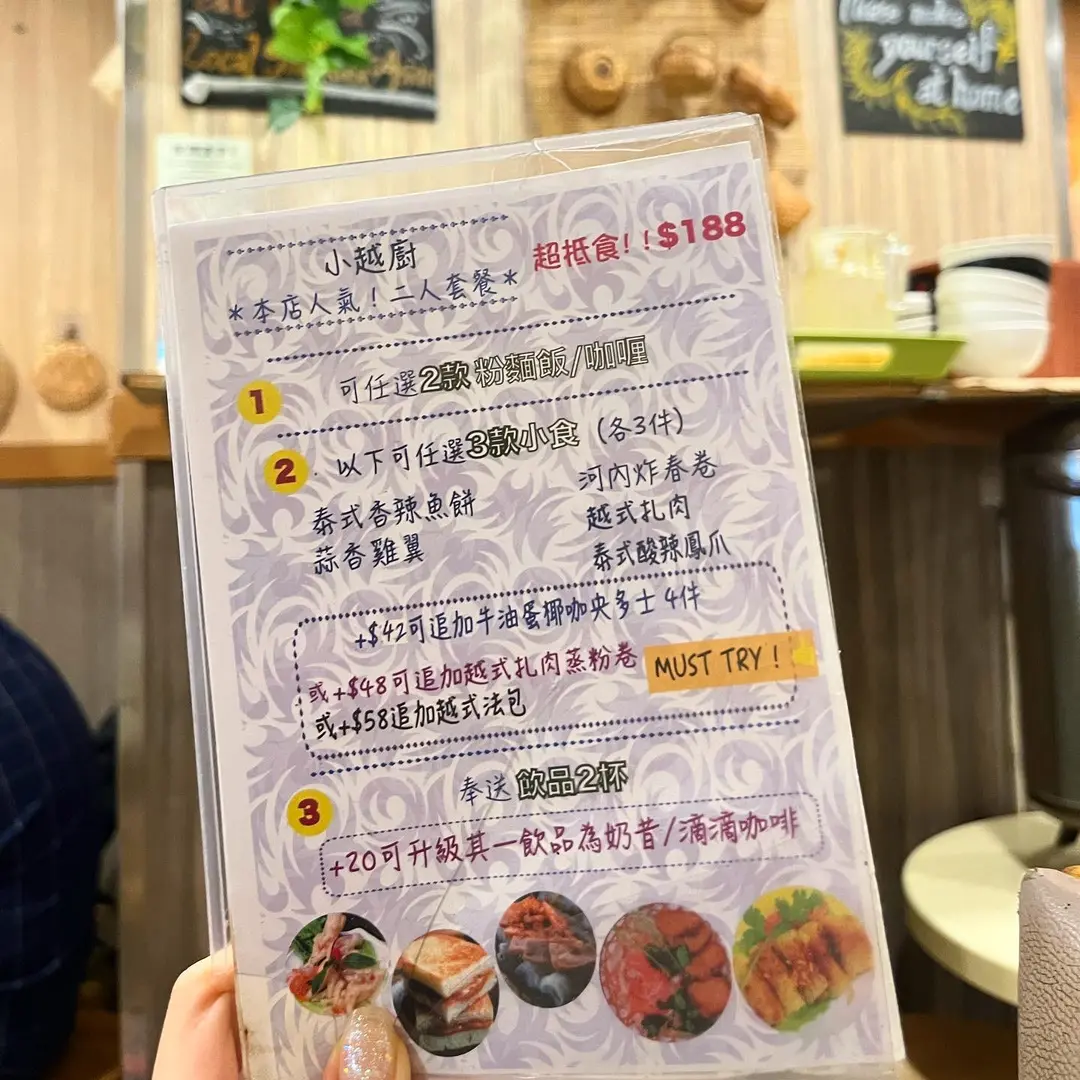 yourself
at home
小越廚
超抵食!!$188
*本店人氣!二人套餐*
1 可任選2款粉麵飯/咖喱
2 . 以下可任選3款小食 (各3件)
泰式香辣魚餅 河內炸春卷
蒜香雞翼 越式扎肉
泰式酸辣鳳爪
+$42可追加牛油蛋椰咖央多士 4件
或+$48可追加越式扎肉蒸粉卷 MUST TRY!
或+$58追加越式法包
3 奉送 飲品2杯
+20可升級其一飲品為奶昔/滴滴咖啡